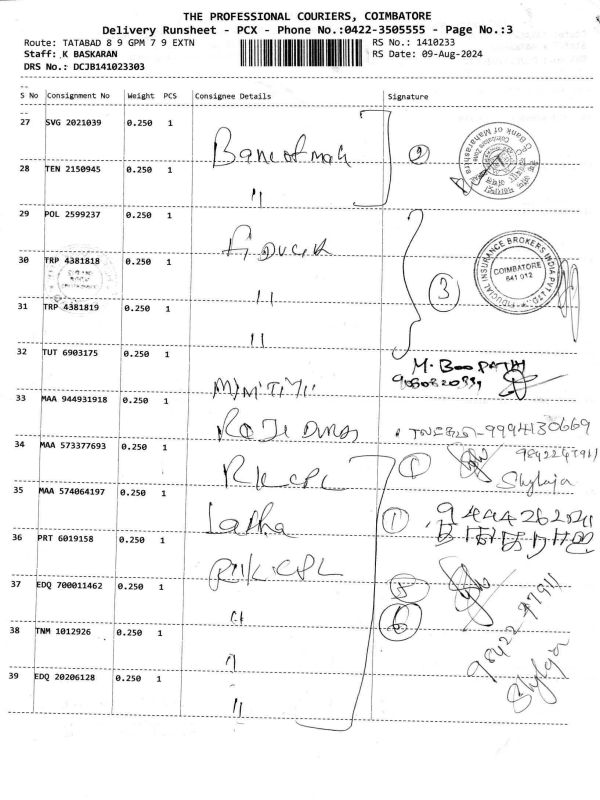 THE PROFESSIONAL COURIERS, COIMBATORE
Delivery Runsheet - PCX - Phone No.:0422-3505555 - Page No.:3
Route: TATABAD 8 9 GPM 7 9 EXTN RS No.: 1410233
Staff: K BASKARAN RS Date: 09-Aug-2024
DRS No.: DCJB141023303
S No Consignment No Weight PCS Consignee Details Signature
27 SVG 2021039 0.250 1
Bank of mah 2
28 TEN 2150945 0.250 1
"
29 POL 2599237 0.250 1
30 TRP 4381818 0.250 1
" 3
FIDUCIAL INSURANCE BROKERS INDIA PVT LTD.
COIMBATORE
641 012
31 TRP 4381819 0.250 1
"
32 TUT 6903175 0.250 1
M. Boopathi
33 MAA 944931918 0.250 1
9994130669
34 MAA 573377693 0.250 1
RKCPL 1 9842247911
Shylaja
35 MAA 574064197 0.250 1
Latha 1
36 PRT 6019158 0.250 1
RKCPL
37 EDQ 700011462 0.250 1
" 5
6
38 TNM 1012926 0.250 1
"
39 EDQ 20206128 0.250 1
"
98422 47911
Shylaja